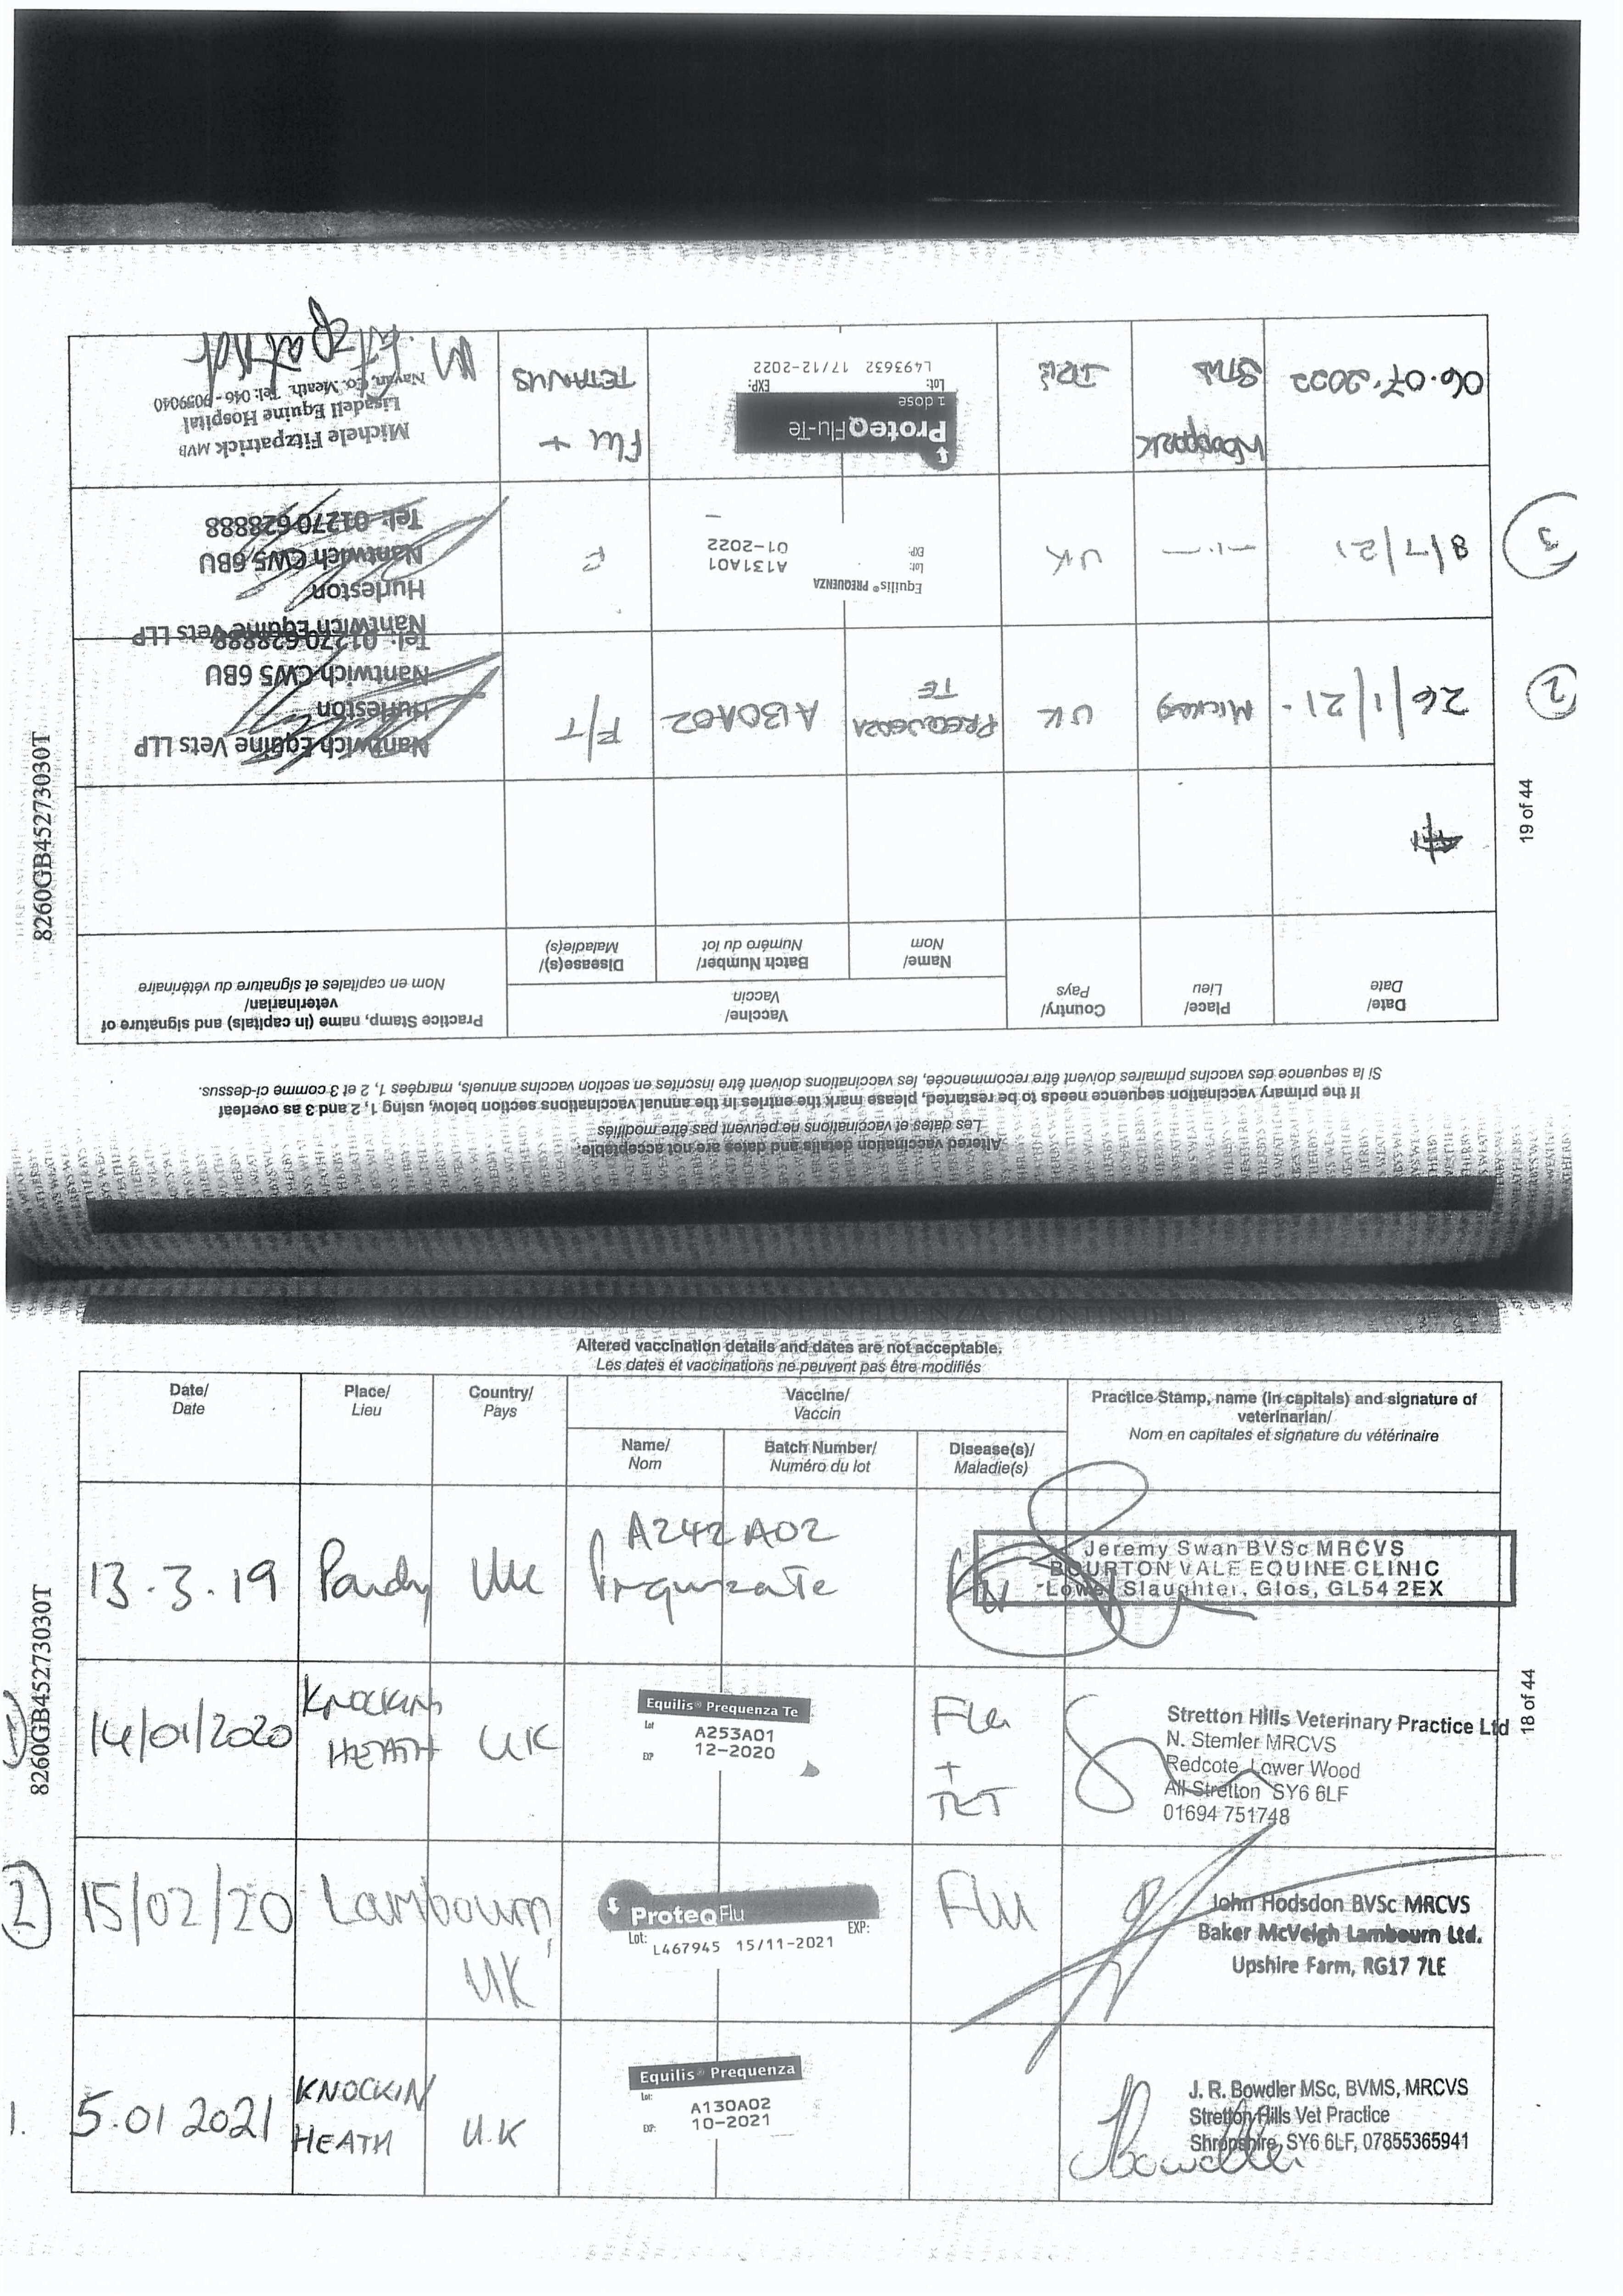 Altered vaccination details and dates are not acceptable.
Les dates et vaccinations ne peuvent pas être modifiés
Date/
Date
Place/
Lieu
Country/
Pays
Vaccine/
Vaccin
Name/
Nom
Batch Number/
Numéro du lot
Disease(s)/
Maladie(s)
Practice Stamp, name (in capitals) and signature of
veterinarian/
Nom en capitales et signature du vétérinaire
13.3.19
UK
A242A02
Flu
Jeremy Swan BVSc MRCVS
BOURTON VALE EQUINE CLINIC
Lower Slaughter, Glos, GL54 2EX
1
14/01/2020
KNOCKIN
HEATH
UK
Equilis® Prequenza Te
Lot
A253A01
EXP
12-2020
Flu
+
TET
Stretton Hills Veterinary Practice Ltd
N. Stemler MRCVS
Redcote, Lower Wood
All Stretton SY6 6LF
01694 751748
2
15/02/20
Lambourn,
UK
ProteqFlu
Lot:
EXP:
L467945 15/11-2021
Flu
John Hodsdon BVSc MRCVS
Baker McVeigh Lambourn Ltd.
Upshire Farm, RG17 7LE
1.
5.01 2021
KNOCKIN
HEATH
U.K
Equilis® Prequenza
Lot:
A130A02
EXP:
10-2021
J. R. Bowdler MSc, BVMS, MRCVS
Stretton Hills Vet Practice
Shropshire, SY6 6LF, 07855365941
8260GB45273030T
18 of 44
Altered vaccination details and dates are not acceptable.
Les dates et vaccinations ne peuvent pas être modifiés
If the primary vaccination sequence needs to be restarted, please mark the entries in the annual vaccinations section below, using 1, 2 and 3 as overleaf
Si la sequence des vaccins primaires doivent être recommencée, les vaccinations doivent être inscrites en section vaccins annuels, marqées 1, 2 et 3 comme ci-dessus.
Date/
Date
Place/
Lieu
Country/
Pays
Vaccine/
Vaccin
Name/
Nom
Batch Number/
Numéro du lot
Disease(s)/
Maladie(s)
Practice Stamp, name (in capitals) and signature of
veterinarian/
Nom en capitales et signature du vétérinaire
2
26/1/21.
UK
PREQUENZA
TE
A130A02
F/T
Nantwich Equine Vets LLP
Hurleston
Nantwich CW5 6BU
Tel: 01270 628888
3
8/7/21
UK
Equilis® PREQUENZA
Lot:
A131A01
EXP:
01-2022
F
Nantwich Equine Vets LLP
Hurleston
Nantwich CW5 6BU
Tel: 01270 628888
06.07.2022
Woodpark
STUD
IRE
ProteqFlu-Te
1 dose
Lot:
EXP:
L493632 17/12-2022
Flu +
TETANUS
Michele Fitzpatrick MVB
Lisadell Equine Hospital
Navan, Co. Meath. Tel: 046 - 9059040
M Fitzpatrick
8260GB45273030T
19 of 44